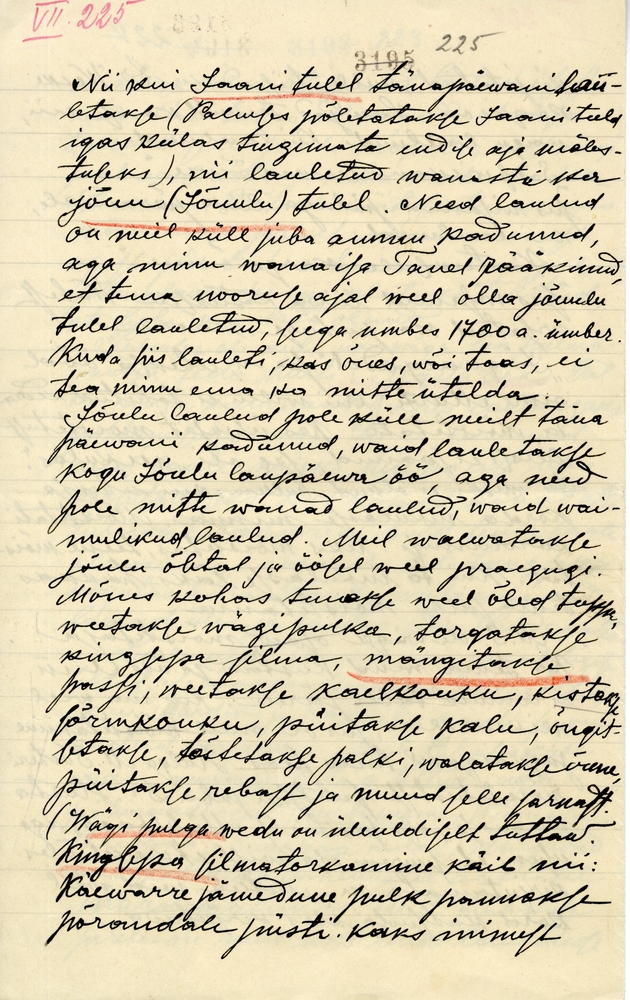 VII. 225
3195 225
Nii kui Jaani tulel tänapäewani lau-
letakse (Palmses põletatakse Jaani tuld
igas külas tingimata endise aja mäles-
tuseks), nii lauletud wanasti ka
jõuu (Jõuulu) tulel. Need laulud
on meil küll juba ammu kadunud,
aga minu wanaisa Tanel rääkinud,
et tema nooruse ajal weel olla jõuulu
tulel lauletud, sega umbes 1700 a. ümber.
Kuda siis lauleti, kas õues, wõi toas, ei
tea minu ema ka mitte ütelda.
Jõulu laulud pole küll meilt täna
päewani kadunud, waid lauletakse
kogu Jõulu laupäewa öö, aga need
pole mitte wanad laulud, waid wai-
mulikud laulud. Meil waewatakse
jõulu õhtal ja öösel weel praegugi.
Mõnes kohas tuuakse weel õled tuppa,
weetakse wägipulka, torgatakse
kingsepa silma, mängitakse
passi, weetakse kaelkonku, kistakse
sõrmkonku, püitakse kalu, õngit-
setakse, tõstetakse palki, walatakse õnne,
püitakse rebast ja muud selle sarnast.
(Wägi pulga wedu on üleüldiselt tuttaw.
Kingsepa silmatorkamine käib nii:
Käewarre jämedune pulk pannakse
põrandale püsti. Kaks inimest